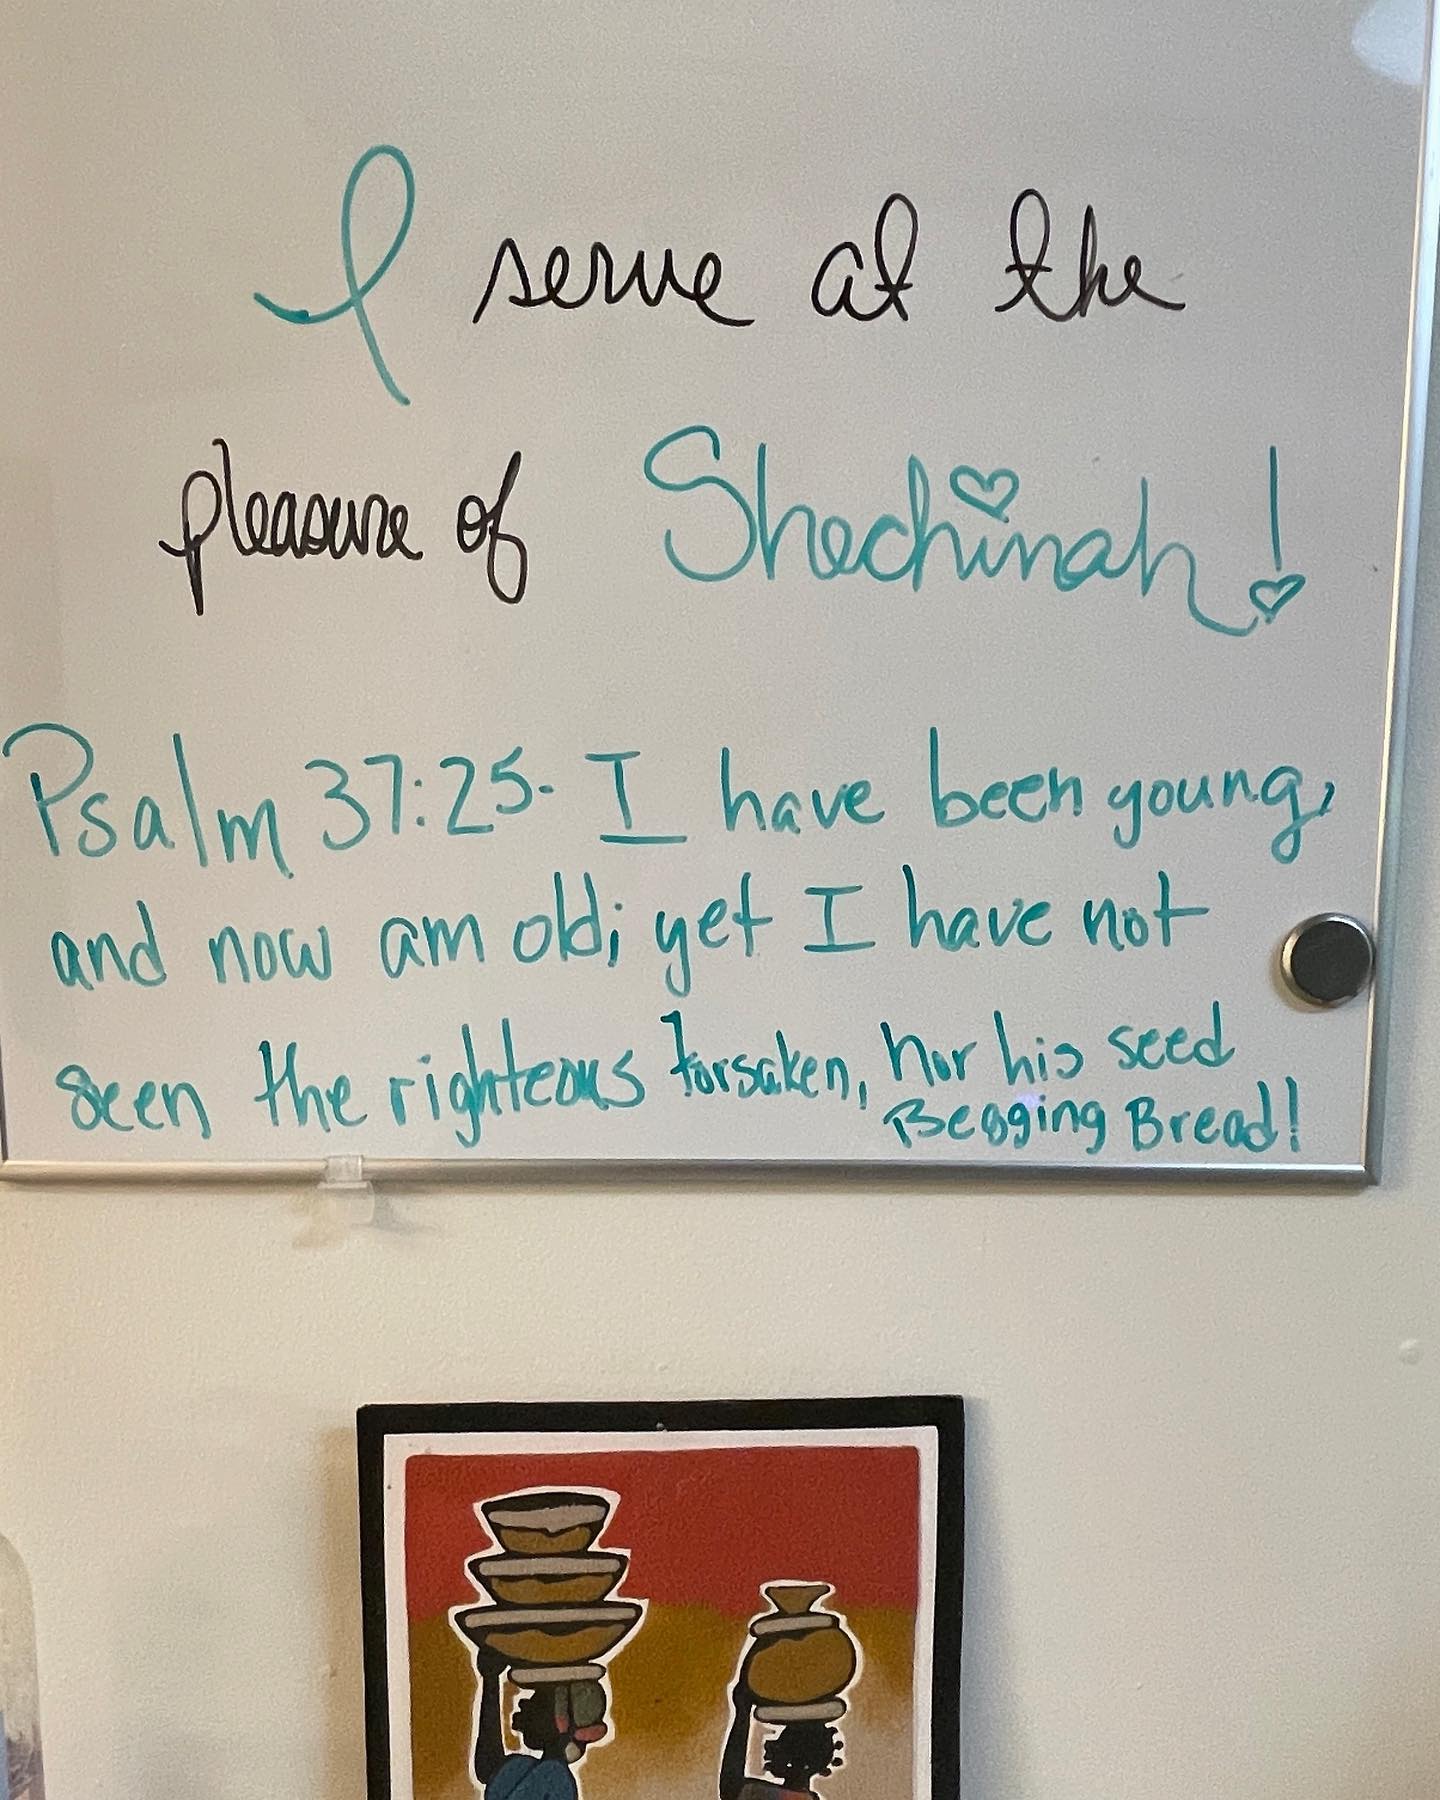 I serve at the
pleasure of Shechinah!
Psalm 37:25. I have been young,
and now am old; yet I have not
seen the righteous forsaken, nor his seed
Begging Bread!